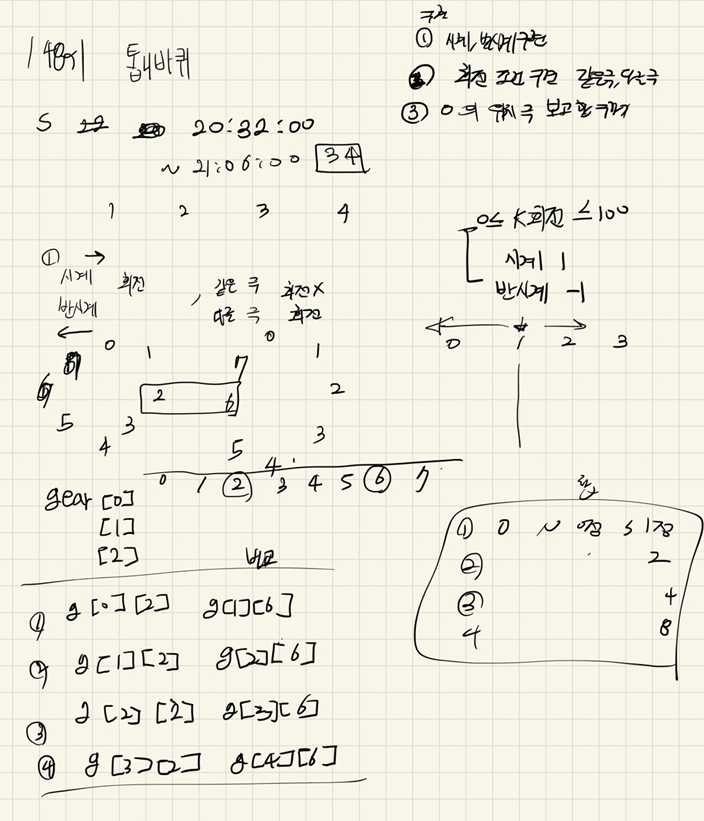 구현
① 시계, 반시계 구현
② 회전 조건 구현 같은극, 다른극
③ 0의 위치 극 보고 합 구하기
톱니바퀴
S 20:32:00
~ 21:06:00 34
1 2 3 4
0 ≤ K회전 ≤ 100
시계 1
반시계 -1
① →
시계 회전 , 같은 극 회전X
반시계 다른 극 회전
←
0 1 2 3
0 1 0 1
7 7
6 2 6 2
5 3 5 3
4 4
0 1 ② 3 4 5 ⑥ 7
gear [0]
[1]
[2] 비교
① g[0][2] g[1][6]
② g[1][2] g[2][6]
③ g[2][2] g[3][6]
④ g[3][2] g[4][6]
① 0 N 0점 S 1점
② 2
③ 4
4 8